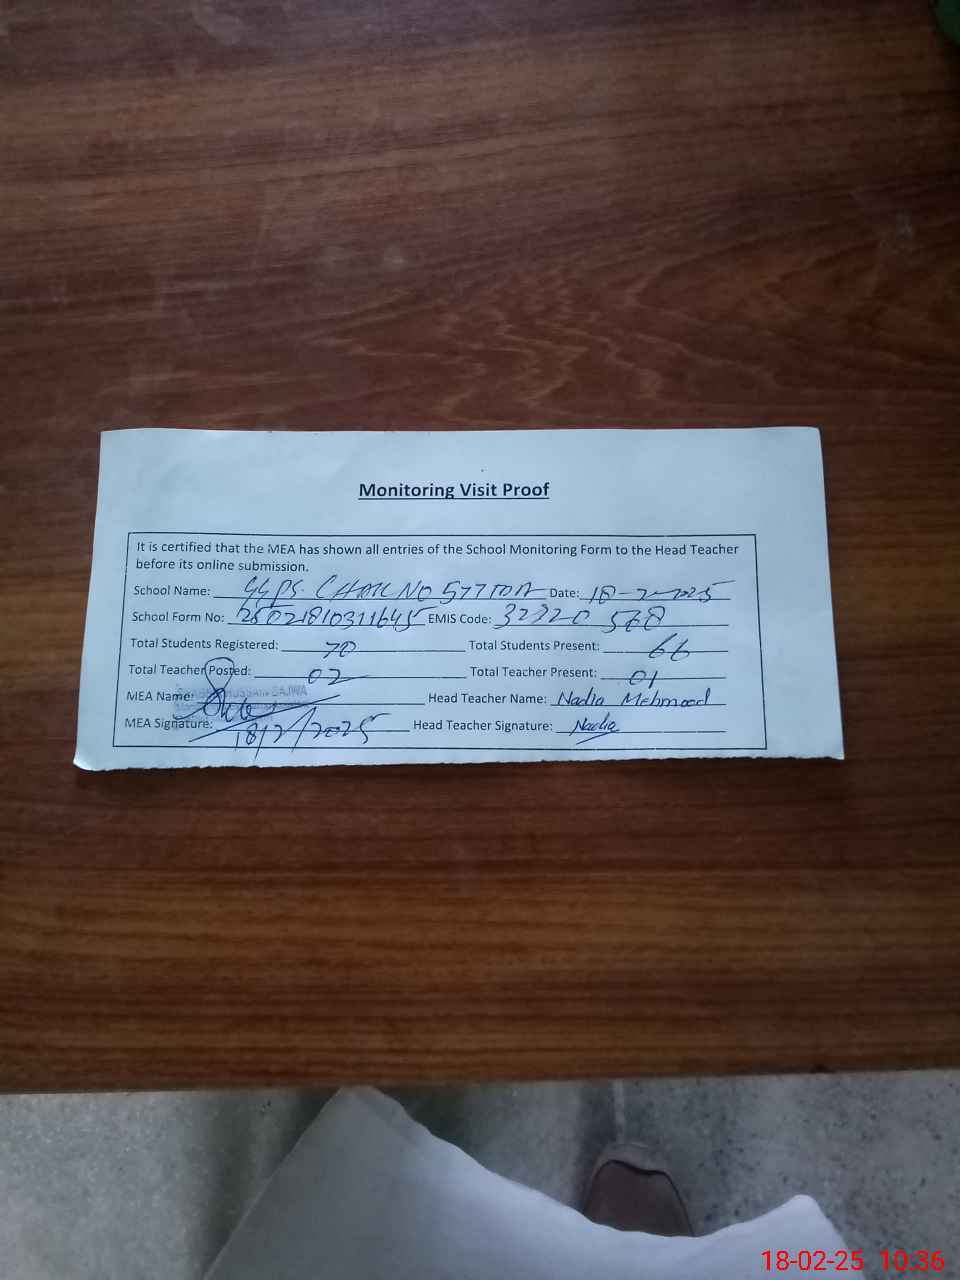 Monitoring Visit Proof
It is certified that the MEA has shown all entries of the School Monitoring Form to the Head Teacher
before its online submission.
School Name: GGPS. CHAK NO 577 TDA Date: 18-2-2025
School Form No: EMIS Code: 32320 568
Total Students Registered: 70 Total Students Present: 66
Total Teacher Posted: 02 Total Teacher Present: 01
MEA Name: HUSSAIN Head Teacher Name: Nadia Mehmood
MEA Signature: 18/2/2025 Head Teacher Signature: Nadia
18-02-25 10:36